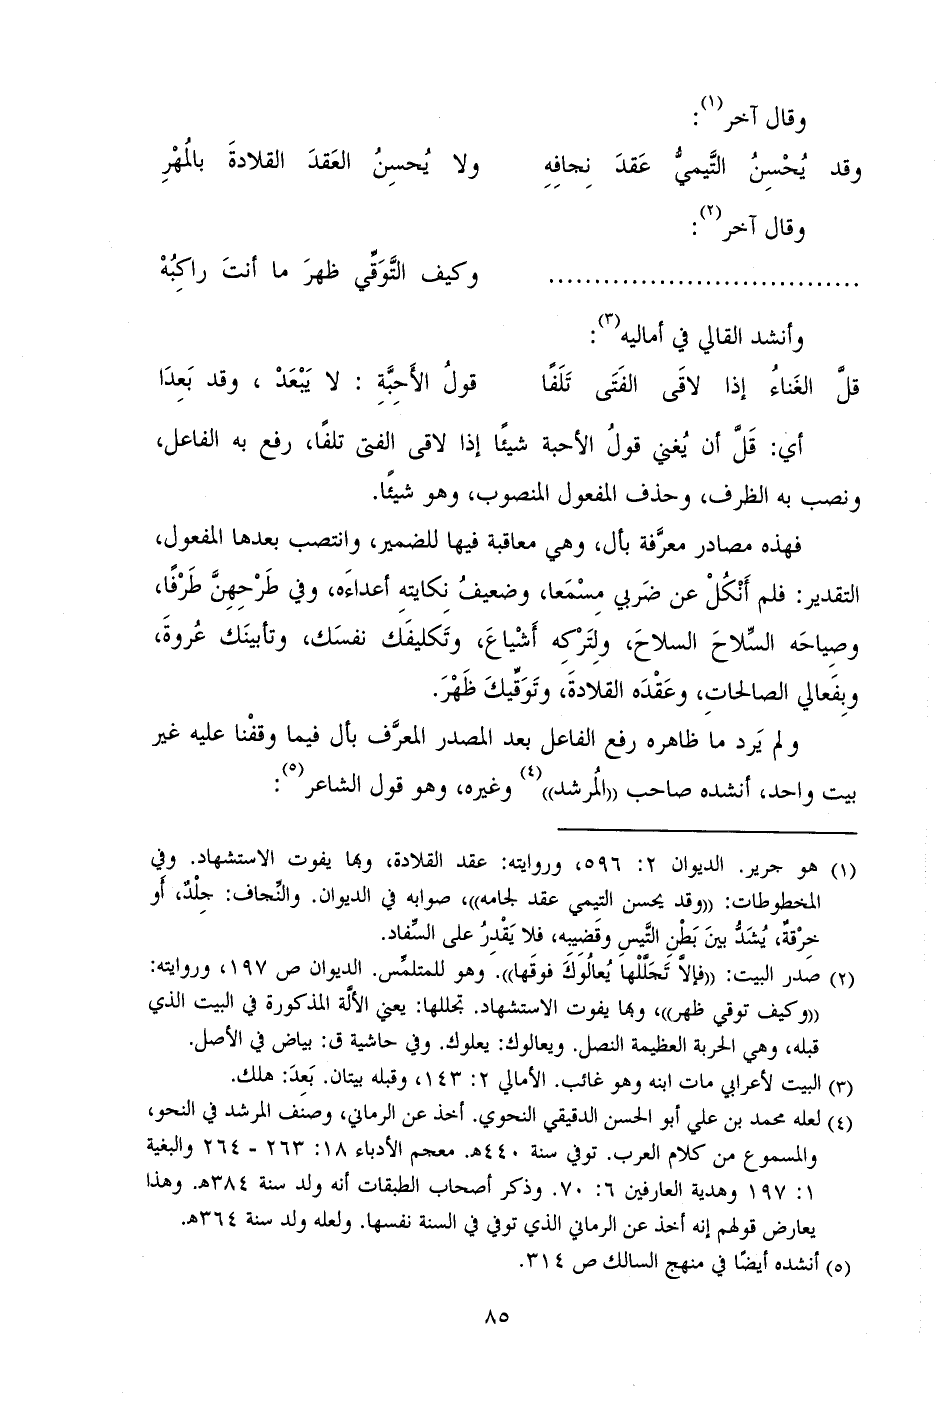 وقال آخر(١):
وقد يُحْسِنُ التَّيميُّ عَقدَ نِجافِهِ    ولا يُحسِنُ العَقدَ القلادةَ بالمُهْرِ
وقال آخر(٢):
..................................    وكيف التَّوَقِّي ظهرَ ما أنتَ راكِبُهْ
وأنشد القالي في أماليه(٣):
قلَّ الغَناءُ إذا لاقَى الفَتَى تَلَفًا    قولُ الأَحِبَّةِ : لا يَبْعَدْ ، وقد بَعِدَا
أي: قَلَّ أن يُغني قولُ الأحبة شيئًا إذا لاقى الفتى تلفًا، رفع به الفاعل،
ونصب به الظرف، وحذف المفعول المنصوب، وهو شيئًا.
فهذه مصادر معرَّفة بأل، وهي معاقبة فيها للضمير، وانتصب بعدها المفعول،
التقدير: فلم أَنْكُلْ عن ضَربي مِسْمَعا، وضعيفُ نِكايتِه أعداءَه، وفي طَرْحِهِنَّ طَرْفًا،
وصِياحَه السِّلاحَ السلاحَ، ولِتَرْكِه أَشْياعَ، وتَكليفَك نفسَك، وتأبينَك عُروةَ،
وبِفَعالي الصالحاتِ، وعَقْدَه القلادةَ، وتَوَقِّيكَ ظَهْرَ.
ولم يَرد ما ظاهره رفع الفاعل بعد المصدر المعرَّف بأل فيما وقفْنا عليه غير
بيت واحد، أنشده صاحب ((المُرشد))(٤) وغيره، وهو قول الشاعر(٥):
(١) هو جرير. الديوان ٢: ٥٩٦، وروايته: عقد القلادة، وبها يفوت الاستشهاد. وفي
المخطوطات: ((وقد يحسن التيمي عقد لجامه))، صوابه في الديوان. والنِّجاف: جِلْدٌ، أو
خِرْقةٌ، يُشَدُّ بينَ بَطْنِ التَّيسِ وقَضيبِه، فلا يَقْدِرُ على السِّفاد.
(٢) صدر البيت: ((فإلاَّ تَجَلَّلْها يُعالُوكَ فوقَها)). وهو للمتلمِّس. الديوان ص ١٩٧، وروايته:
((وكيف توقي ظهر))، وبها يفوت الاستشهاد. تجللها: يعني الألَّة المذكورة في البيت الذي
قبله، وهي الحربة العظيمة النصل. ويعالوك: يعلوك. وفي حاشية ق: بياض في الأصل.
(٣) البيت لأعرابي مات ابنه وهو غائب. الأمالي ٢: ١٤٣، وقبله بيتان. بَعِدَ: هلك.
(٤) لعله محمد بن علي أبو الحسن الدقيقي النحوي. أخذ عن الرماني، وصنف المرشد في النحو،
والمسموع من كلام العرب. توفي سنة ٤٤٠هـ. معجم الأدباء ١٨: ٢٦٣ - ٢٦٤ والبغية
١: ١٩٧ وهدية العارفين ٦: ٧٠. وذكر أصحاب الطبقات أنه ولد سنة ٣٨٤هـ. وهذا
يعارض قولهم إنه أخذ عن الرماني الذي توفي في السنة نفسها. ولعله ولد سنة ٣٦٤هـ.
(٥) أنشده أيضًا في منهج السالك ص ٣١٤.
٨٥